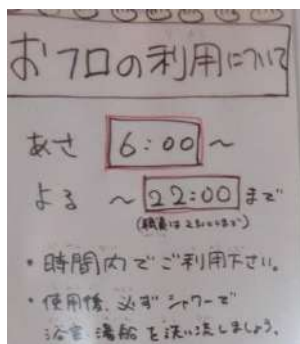 おフロの利用について
あさ 6:00 ～
よる ～ 22:00 まで
(職員は23:00まで)
・時間内でご利用下さい。
・使用後、必ずシャワーで
浴室、湯船を洗い流しましょう。